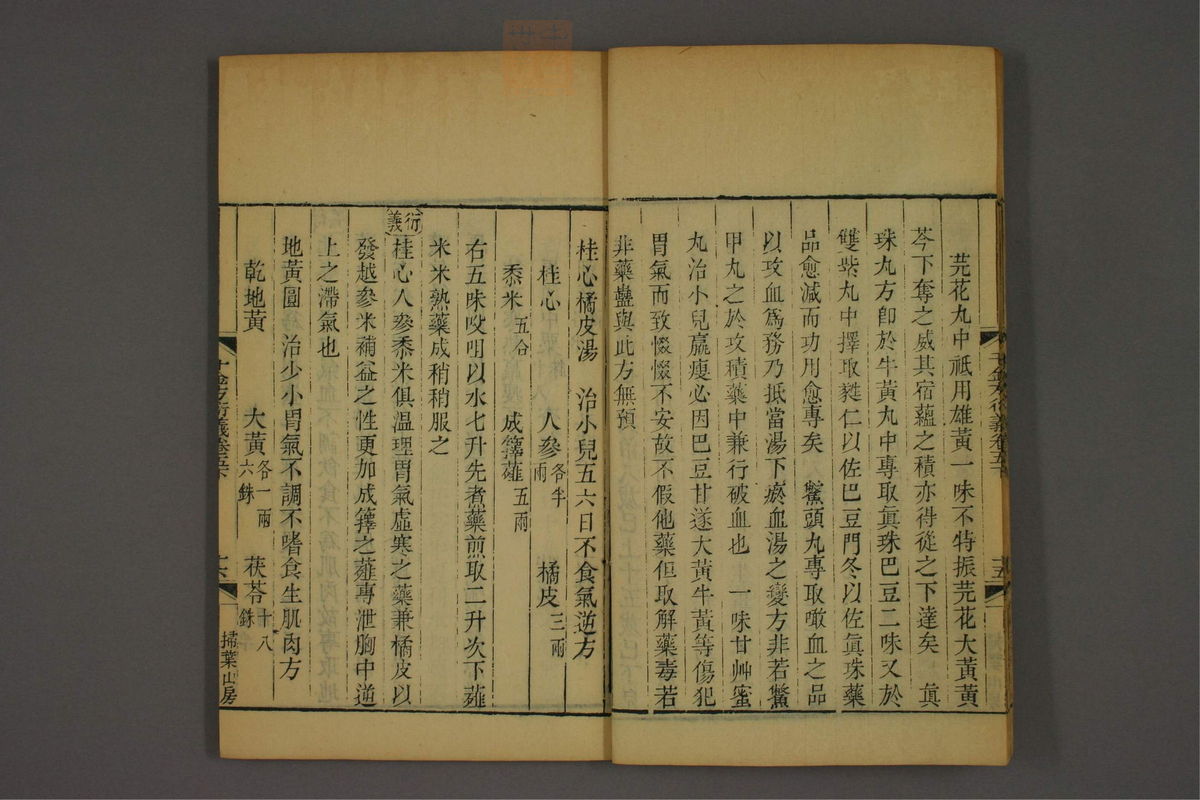 芫花丸中祇用雄黃一味不特振芫花大黃黃
芩下奪之威其宿蘊之積亦得從之下達矣　眞
珠丸方卽於牛黃丸中專取眞珠巴豆二味又於
雙紫丸中擇取蕤仁以佐巴豆門冬以佐眞珠藥
品愈減而功用愈專矣　鱉頭丸專取噉血之品
以攻血爲務乃抵當湯下瘀血湯之變方非若鱉
甲丸之於攻積藥中兼行破血也　一味甘艸蜜
丸治小兒羸瘦必因巴豆甘遂大黃牛黃等傷犯
胃氣而致惙惙不安故不假他藥但取解藥毒若
非藥蠱與此方無預
桂心橘皮湯　治小兒五六日不食氣逆方
桂心　人參各半兩　橘皮三兩
黍米五合　成籜薤五兩
右五味㕮咀以水七升先煮藥煎取二升次下薤
米米熟藥成稍稍服之
衍義
桂心人參黍米俱溫理胃氣虛寒之藥兼橘皮以
發越參米補益之性更加成籜之薤專泄胸中逆
上之滯氣也
地黃圓　治少小胃氣不調不嗜食生肌肉方
乾地黃　大黃各一兩六銖　茯苓十八銖
千金方衍義卷五下
十六
掃葉山房